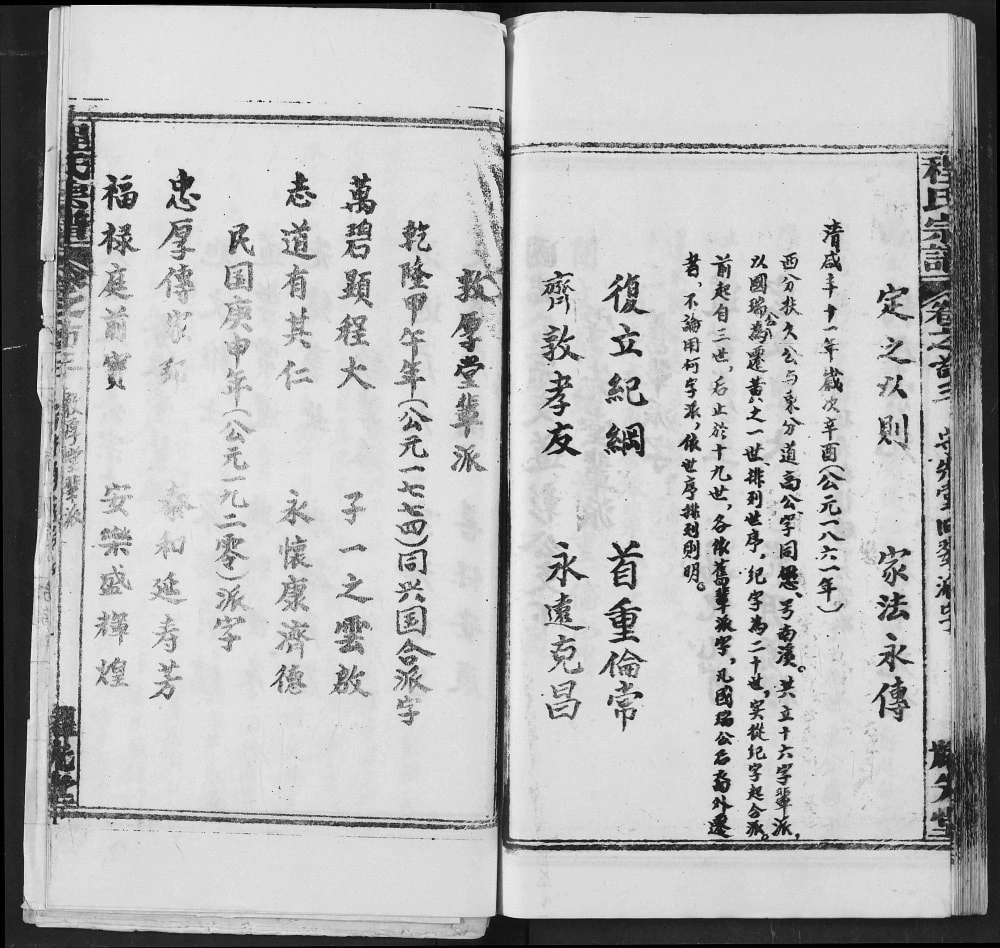 程氏宗譜
卷之首三
定之以則 家法永傳
清咸丰十一年歲次辛酉(公元一八六一年)
西分扶久公与東分道高公字同愚、号南溪。共立十六字輩派，
以國瑞公為遷黄之一世，排列世序，紀字為二十世，实從紀字起合派。
前起自三世，后止於十九世，各依舊輩派字，凡國瑞公后裔外遷
者，不論用何字派，依世序排列則明。
復立紀綱 首重倫常
齊敦孝友 永遠克昌
敦厚堂輩派
乾隆甲午年(公元一七七四)同兴国合派字
萬碧顯程大 子一之雲啟
志道有其仁 永懷康濟德
民国庚申年(公元一九二零)派字
忠厚傳家邦 泰和延寿芳
福禄庭前寶 安樂盛輝煌
程氏宗譜
卷之首三
敦厚堂輩派